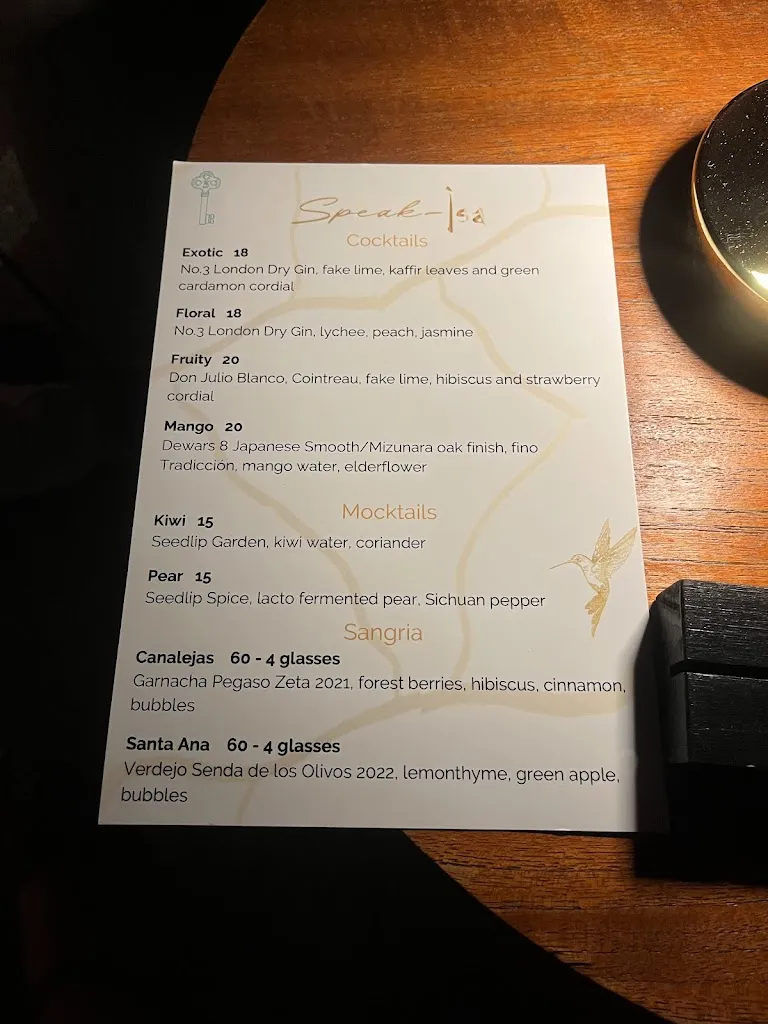 Speak-Isa
Cocktails
Exotic 18
No.3 London Dry Gin, fake lime, kaffir leaves and green
cardamon cordial
Floral 18
No.3 London Dry Gin, lychee, peach, jasmine
Fruity 20
Don Julio Blanco, Cointreau, fake lime, hibiscus and strawberry
cordial
Mango 20
Dewars 8 Japanese Smooth/Mizunara oak finish, fino
Tradicción, mango water, elderflower
Mocktails
Kiwi 15
Seedlip Garden, kiwi water, coriander
Pear 15
Seedlip Spice, lacto fermented pear, Sichuan pepper
Sangria
Canalejas 60 - 4 glasses
Garnacha Pegaso Zeta 2021, forest berries, hibiscus, cinnamon,
bubbles
Santa Ana 60 - 4 glasses
Verdejo Senda de los Olivos 2022, lemonthyme, green apple,
bubbles